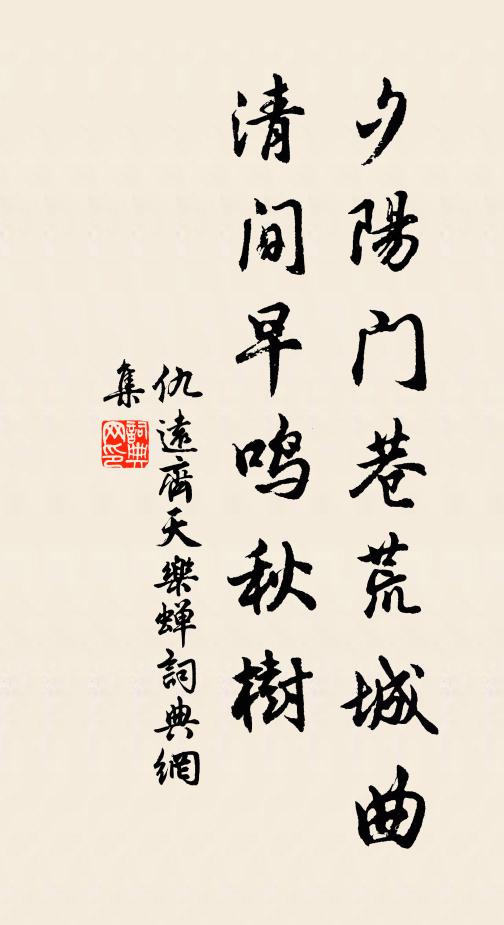 夕陽门巷荒城曲
清间早鸣秋樹
仇遠齊天樂蝉詞典網
集
詞典网印